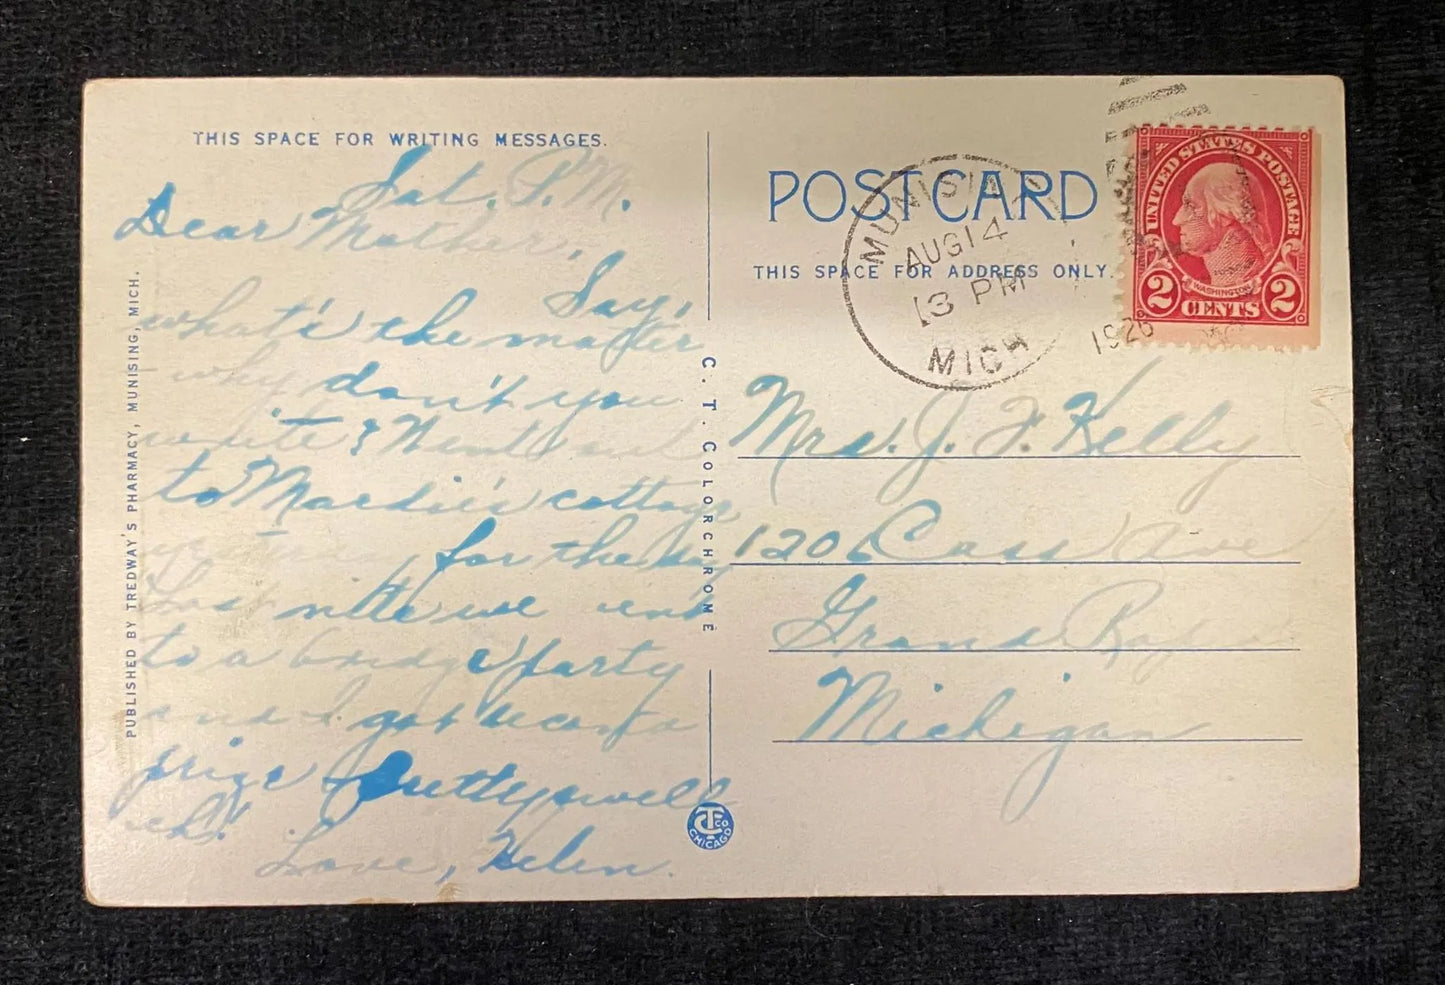 THIS SPACE FOR WRITING MESSAGES.
Sat. P.M.
Dear Mother,
Say,
what's the matter
why don't you
write? Went out
to Mardie's cottage
yesterday for the day
Last nite we went
to a bridge party
and I got second
prize Pretty swell
eh!
Love, Helen.
PUBLISHED BY TREDWAY'S PHARMACY, MUNISING, MICH.
C. T. COLORCHROME
CTCO
CHICAGO
POST CARD
THIS SPACE FOR ADDRESS ONLY.
MUNISING
AUG 14
13 PM
MICH
1926
UNITED STATES POSTAGE
WASHINGTON
2 CENTS 2
Mrs. J. F. Kelly
1206 Cass Ave
Grand Rapids
Michigan